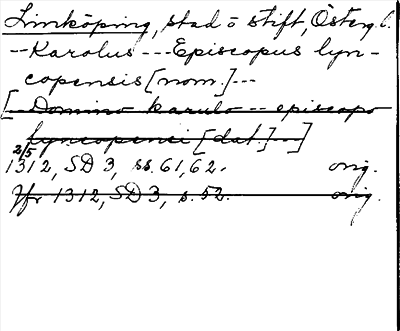 Linköping, stad o stift, Österg.l.
--Karolus---Episcopus lyn-
copensis [nom.]---
[--Domino karulo--episcopo
lyncopensi [dat.]--]
2/5
1312, SD 3, ss. 61, 62. orig.
Jfr 1312, SD 3, s. 52. orig.